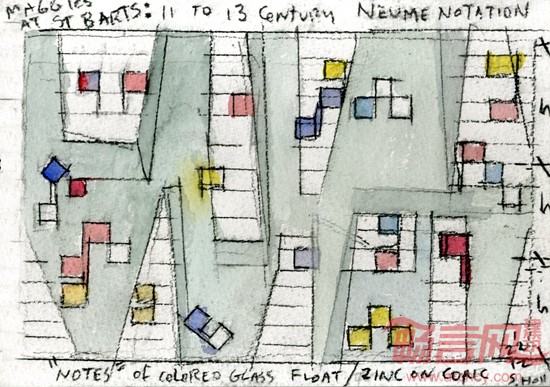 MAGGIES
AT ST BARTS: 11 TO 13 CENTURY NEUME NOTATION
"NOTES" OF COLORED GLASS FLOAT/ZINC ON CONC
畅言网